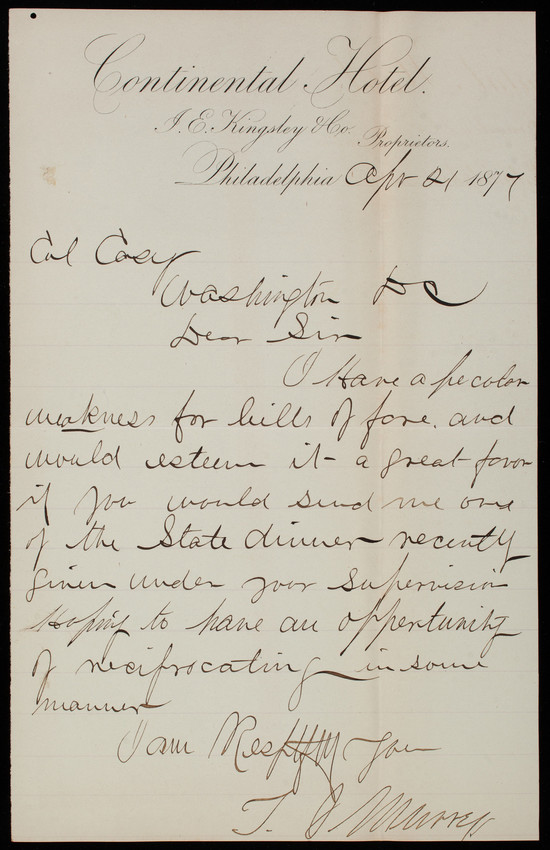 Continental Hotel.
J. E. Kingsley & Co. Proprietors.
Philadelphia Apr 21 1877
Col Casy
Washington DC
Dear Sir
I Have a pecolar
weakness for bills of fare. and
would esteem it a great favor
if you would send me one
of the State dinner recently
given under your supervision
Hoping to have an oppertunity
of reciprocating in some
manner
I am Respfly You
T. J. Murrey